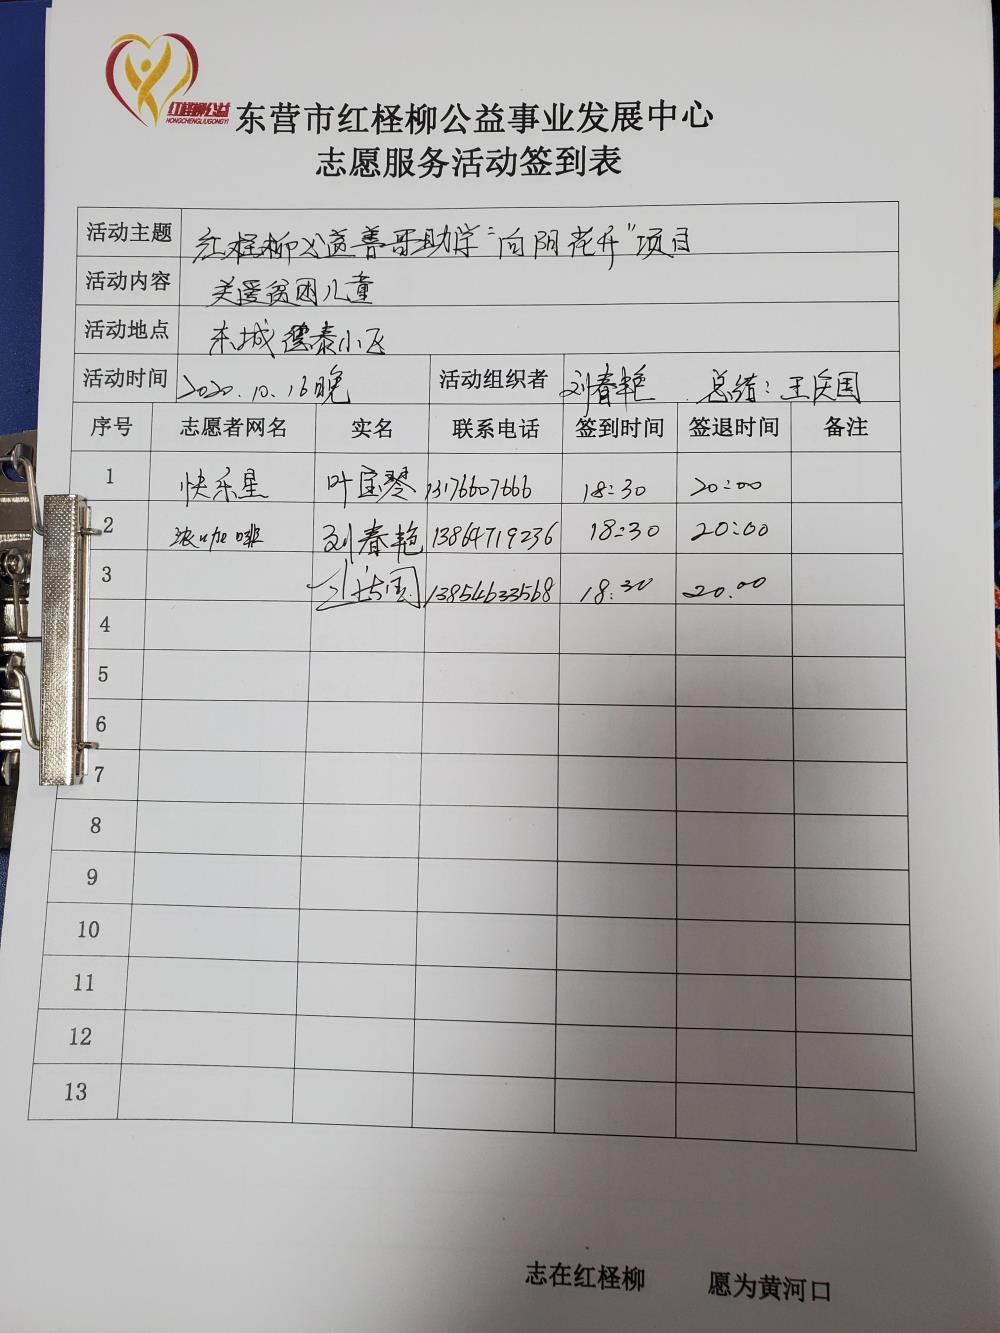 红柽柳公益
HONGCHENGLIUGONGYI
东营市红柽柳公益事业发展中心
志愿服务活动签到表
活动主题 红柽柳公益善哥助学“向阳花开”项目
活动内容 关爱贫困儿童
活动地点 东城德泰小区
活动时间 2020.10.16晚 活动组织者 刘春艳 总结：王庆国
序号 志愿者网名 实名 联系电话 签到时间 签退时间 备注
1 快乐星 叶宝琴 13176607666 18:30 20:00
2 浓咖啡 刘春艳 13864719236 18:30 20:00
3 13854633568 18:30 20:00
4
5
6
7
8
9
10
11
12
13
志在红柽柳 愿为黄河口